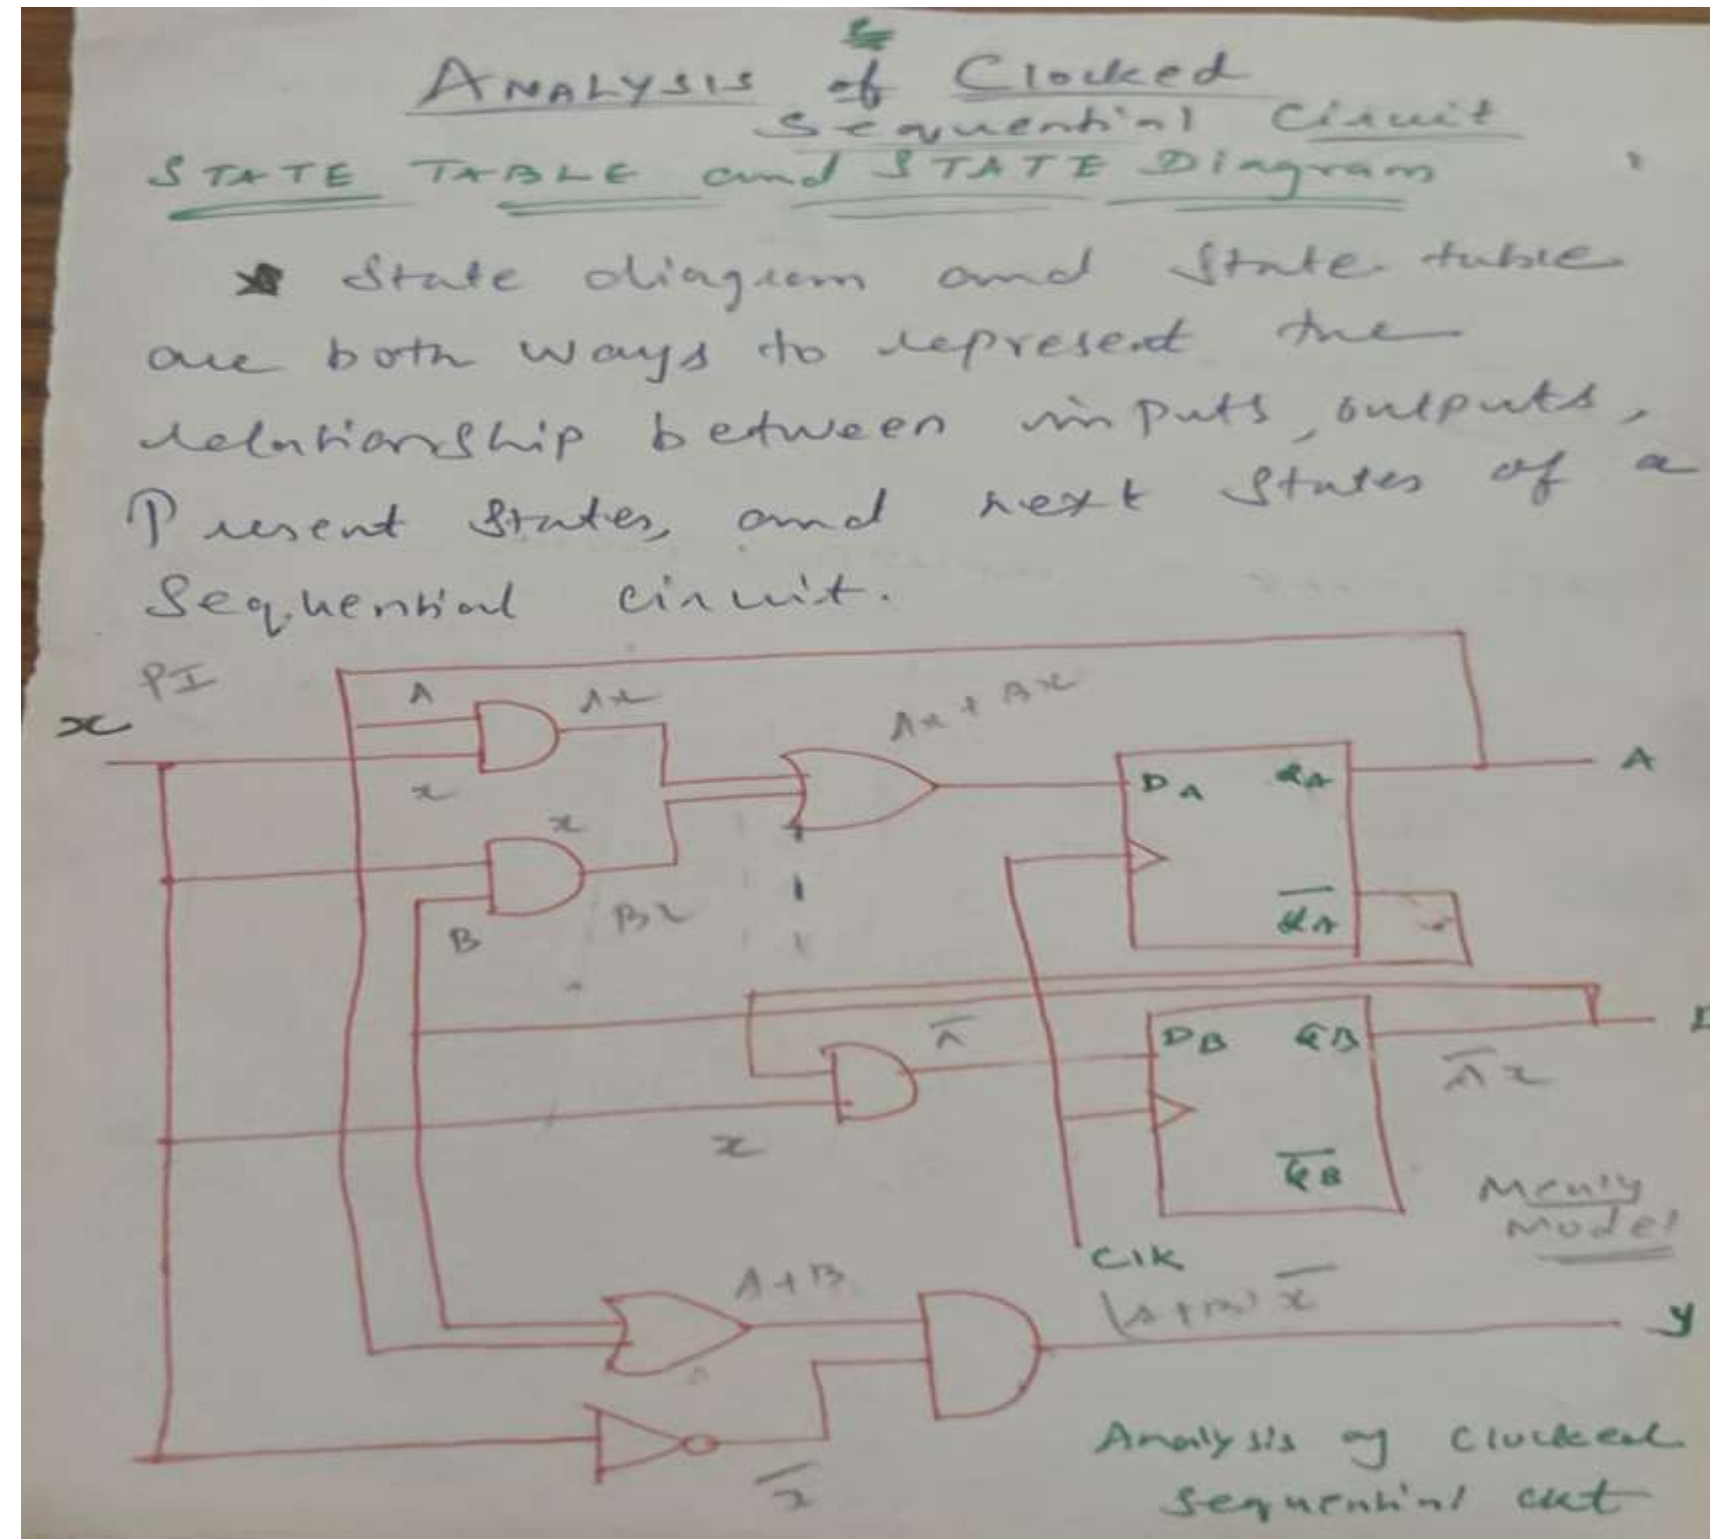 ANALYSIS of Clocked
Sequential Circuit
STATE TABLE and STATE Diagram
* State diagram and State table
are both ways to represent the
relationship between inputs, outputs,
Present States, and next States of a
Sequential circuit.
PI
x
A
Ax
Ax + Bx
x
x
B
Bx
DA QA
A
Q̅A̅
A̅
x
DB QB
A̅x
Q̅B̅
Mealy
Model
Clk
A+B
(A+B) x̅
y
x̅
Analysis of Clocked
Sequential ckt